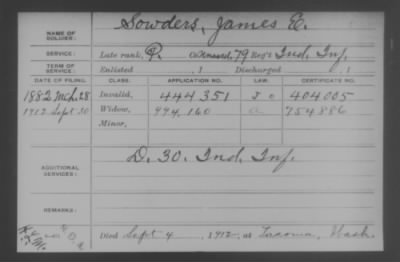 NAME OF SOLDIER: Sowders, James E.
SERVICE: Late rank, P. Co. 79 Reg't Ind. Inf.
TERM OF SERVICE: Enlisted , 1 Discharged , 1
DATE OF FILING. CLASS. APPLICATION NO. LAW. CERTIFICATE NO.
1882 Mch. 28 Invalid, 444351 404005
1912 Sept 30 Widow, 994,160 a 754886
Minor,
ADDITIONAL SERVICES: D. 30. Ind. Inf.
REMARKS:
Died Sept 4, 1912, at Tacoma, Wash.